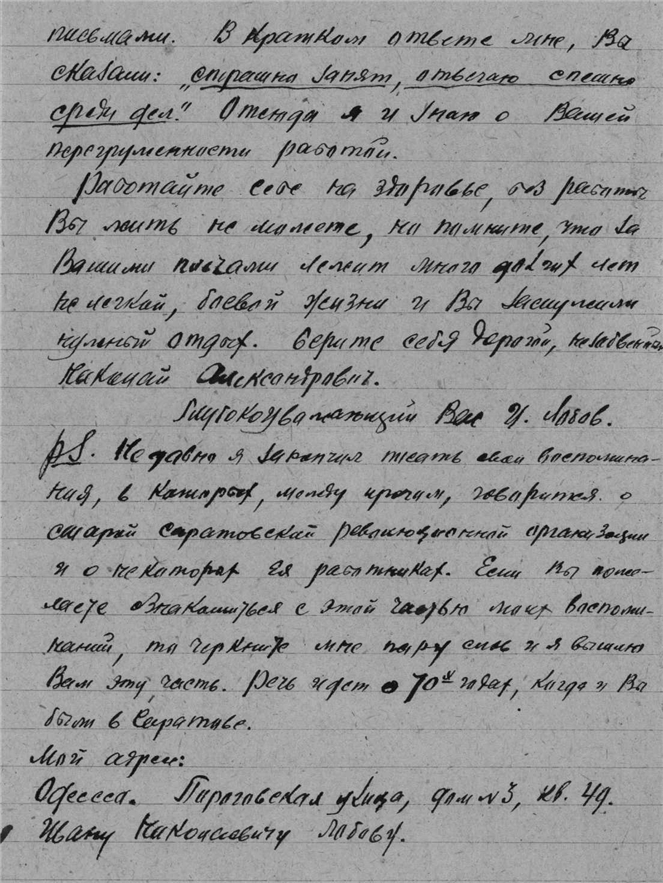 письмами. В кратком ответе мне, Вы
сказали: „страшно занят, отвечаю спешно
среди дел." Отсюда я и знаю о Вашей
перегруженности работой.
Работайте себе на здоровье, без работы
Вы жить не можете, но помните, что за
Вашими плечами лежит много долгих лет
нелегкой, боевой жизни и Вы заслужили
нужный отдых. Берите себя дорогой, незабвенный
Николай Александрович.
Глубокоуважающий Вас И. Лобов.
P.S. Недавно я закончил писать свои воспомина-
ния, в которых, между прочим, говорится о
старой саратовской революционной организации
и о некоторых ея работниках. Если Вы поже-
лаете ознакомиться с этой частью моих воспоми-
наний, то черкните мне пару слов и я вышлю
Вам эту часть. Речь идет о 70х годах, когда и Вы
были в Саратове.
Мой адрес:
Одесса. Пироговская улица, дом №3, кв. 49.
Ивану Николаевичу Лобову.